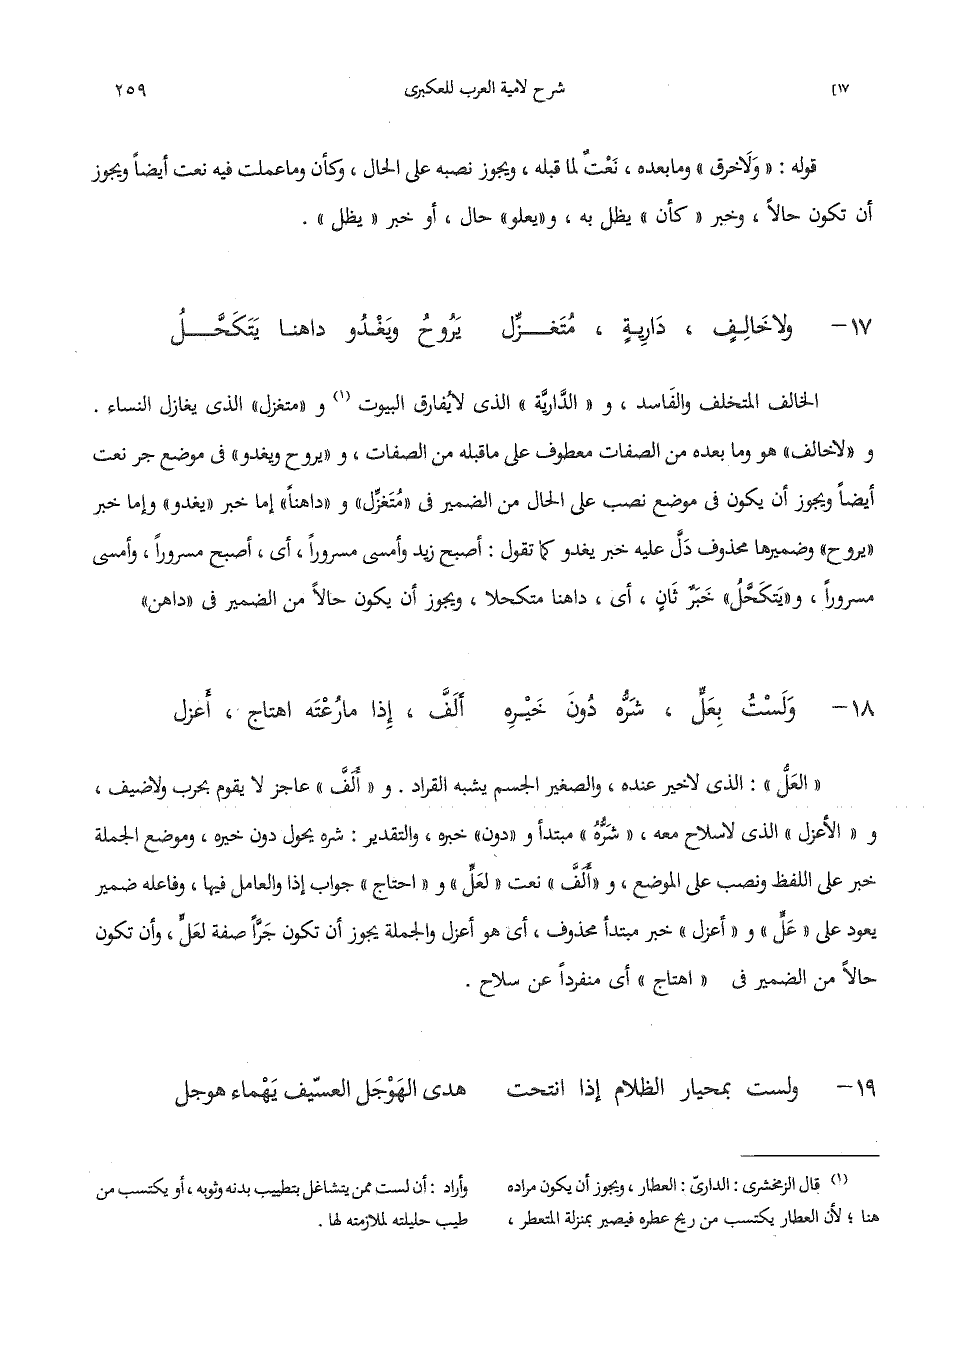 ١٧] شرح لامية العرب للعكبرى ٢٥٩
قوله : « وَلَاخرق » ومابعده ، نَعْتٌ لما قبله ، ويجوز نصبه على الحال ، وكأن وماعملت فيه نعت أيضاً ويجوز
أن تكون حالاً ، وخبر « كأن » يظل به ، و«يعلو» حال ، أو خبر « يظل » .
١٧– ولاخَالِفٍ ، دَارِيةٍ ، مُتَغـــزِّل يَرُوحُ ويَغْدُو داهنـا يَتَكَحَّـــلُ
الخالف المتخلف والفَاسد ، و « الدَّاريَّة » الذى لايُفارق البيوت (١) و «متغزل» الذى يغازل النساء .
و «لاخالف» هو وما بعده من الصفات معطوف على ماقبله من الصفات ، و «يروح ويغدو» فى موضع جر نعت
أيضاً ويجوز أن يكون فى موضع نصب على الحال من الضمير فى «مُتَغزِّل» و «داهناً» إما خبر «يغدو» وإما خبر
«يروح» وضميرها محذوف دَلَّ عليه خبر يغدو كما تقول : أصبح زيد وأمسى مسروراً ، أى ، أصبح مسروراً ، وأمسى
مسروراً ، و«يَتكَحَّلُ» خَبَرٌ ثَانٍ ، أى ، داهنا متكحلا ، ويجوز أن يكون حالاً من الضمير فى «داهن»
١٨– وَلَسْتُ بِعَلٍّ ، شَرُّه دُونَ خَيْـرِه أَلَفَّ ، إِذا مارُعْتَه اهتاج ، أَعزل
« العَلُّ » : الذى لاخير عنده ، والصغير الجسم يشبه القراد . و « أَلَفَّ » عاجز لا يقوم بحرب ولاضيف ،
و « الأعزل » الذى لاسلاح معه ، « شَرُّهُ » مبتدأ و «دون» خبره ، والتقدير : شره يحول دون خيره ، وموضع الجملة
خبر على اللفظ ونصب على الموضع ، و «أَلَفَّ » نعت « لعَلٍّ » و « احتاج » جواب إذا والعامل فيها ، وفاعله ضمير
يعود على « عَلٍّ » و « أعزل » خبر مبتدأ محذوف ، أى هو أعزل والجملة يجوز أن تكون جَرَّاً صفة لعَلٍّ ، وأن تكون
حالاً من الضمير فى « اهتاج » أى منفرداً عن سلاح .
١٩– ولست بمحيار الظلام إذا انتحت هدى الهَوْجَل العسّيف يَهْماء هوجل
(١) قال الزمخشرى : الدارىّ : العطار ، ويجوز أن يكون مراده
هنا ؛ لأن العطار يكتسب من ريح عطره فيصير بمنزلة المتعطر ،
وأراد : أن لست ممن يتشاغل بتطييب بدنه وثوبه ، أو يكتسب من
طيب حليلته لملازمته لها .